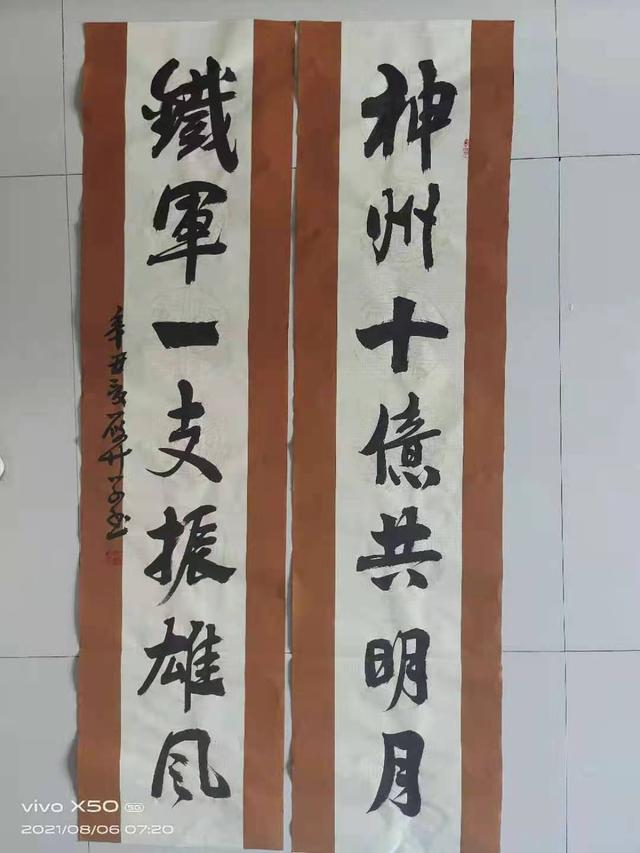 神州十億共明月
鐵軍一支振雄風
辛丑
vivo X50 5G
2021/08/06 07:20